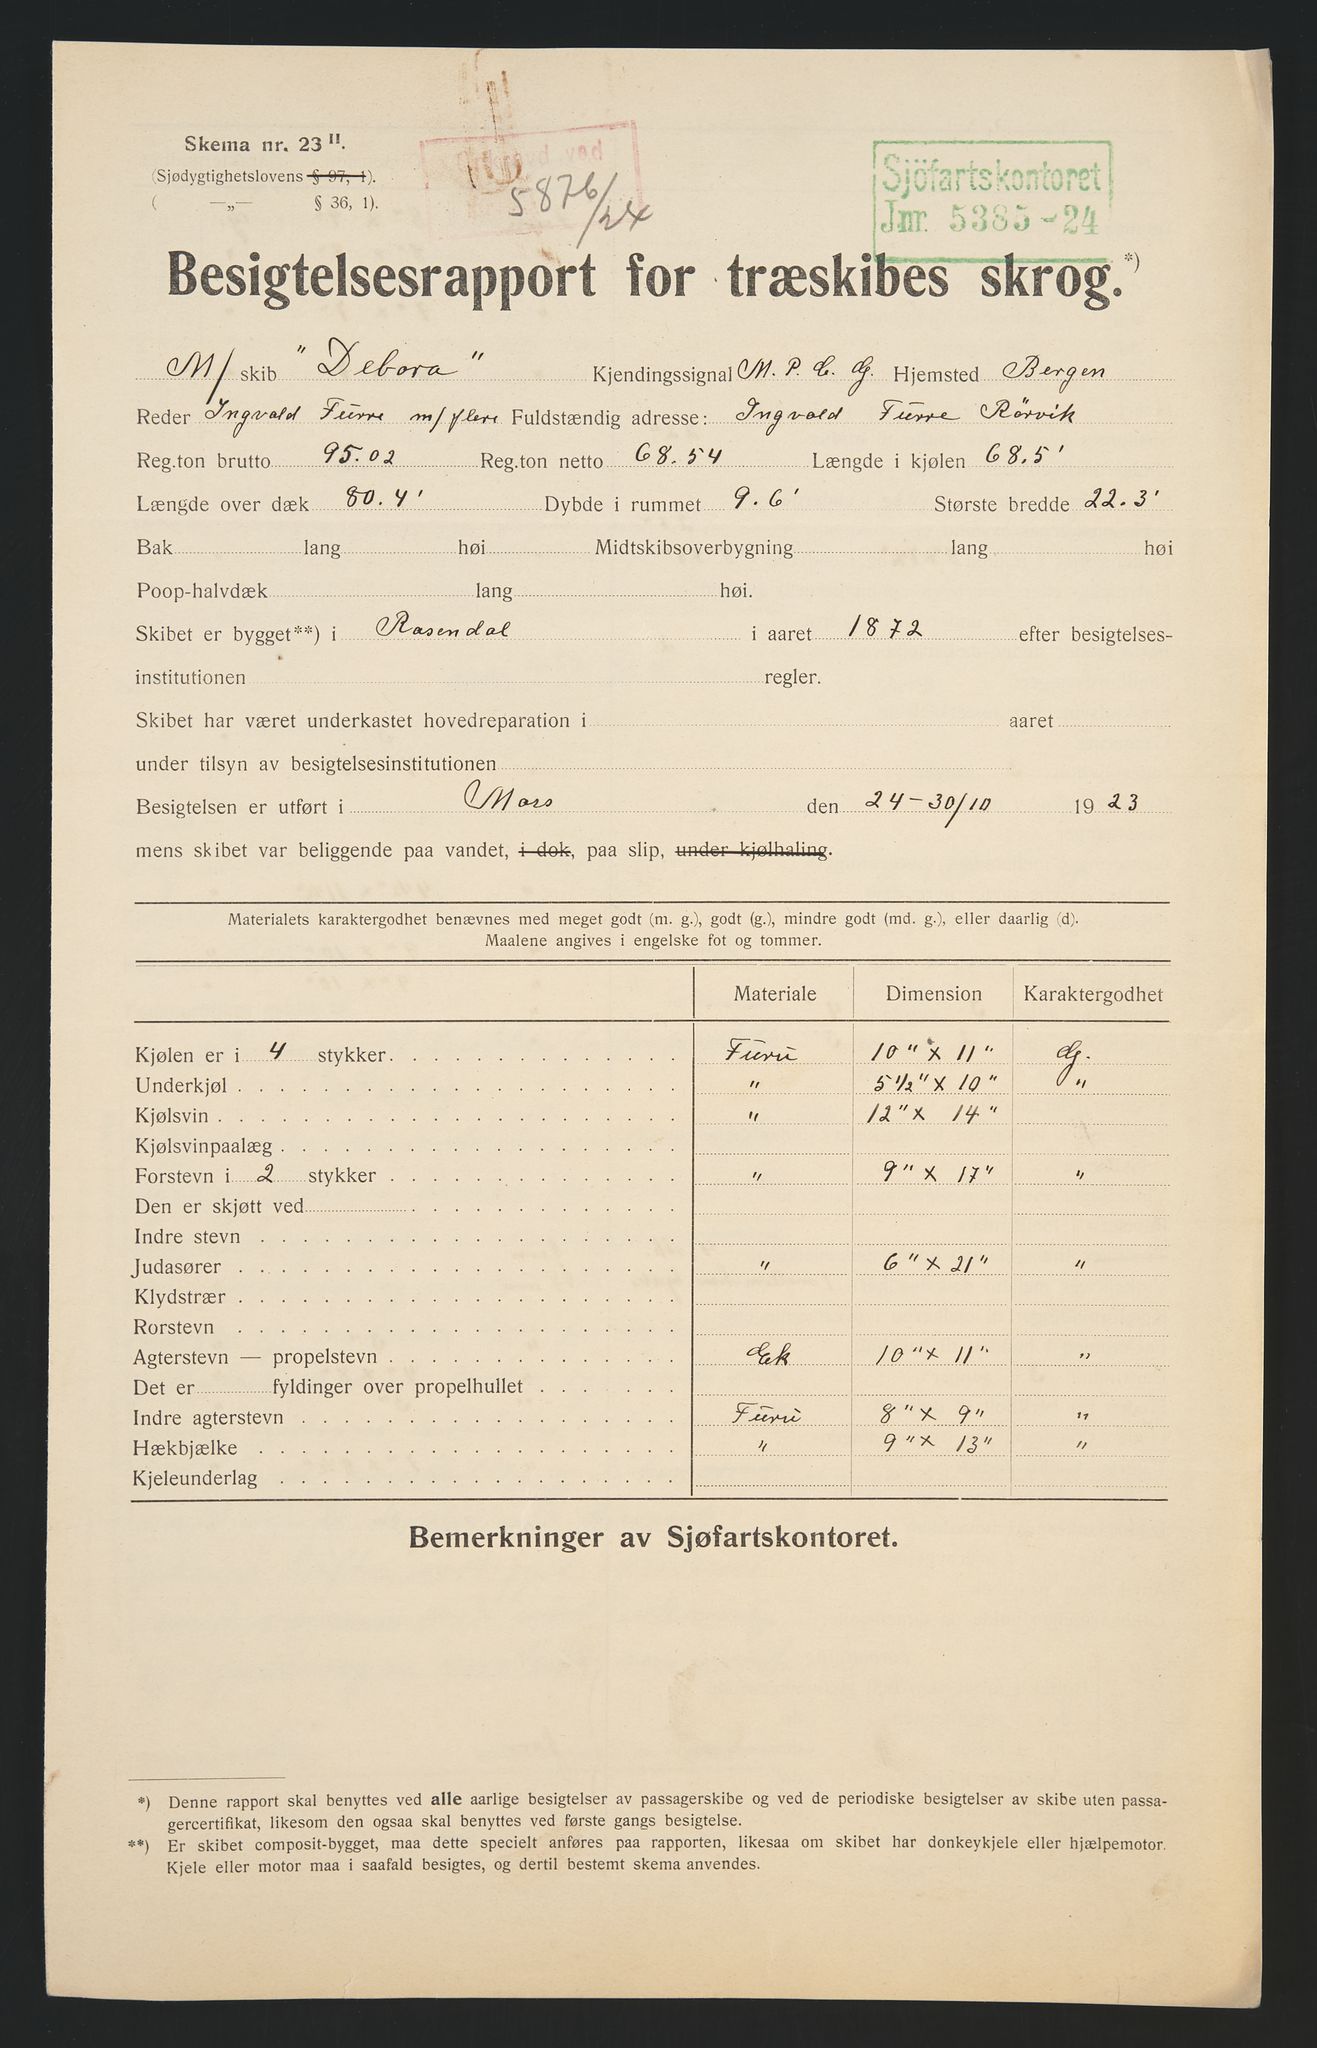 Skema nr. 23 II.
(Sjødygtighetslovens § 97, 1).
( —„— § 36, 1).
ved
5876/24
Sjöfartskontoret
Jnr. 5385-24
Besigtelsesrapport for træskibes skrog.*)
M/ skib "Debora" Kjendingssignal M. P. C. G. Hjemsted Bergen
Reder Ingvald Furre m/ flere Fuldstændig adresse: Ingvald Furre Rörvik
Reg.ton brutto 95.02 Reg.ton netto 68.54 Længde i kjølen 68.5'
Længde over dæk 80.4' Dybde i rummet 9.6' Største bredde 22.3'
Bak lang høi Midtskibsoverbygning lang høi
Poop-halvdæk lang høi.
Skibet er bygget**) i Rosendal i aaret 1872 efter besigtelses-
institutionen regler.
Skibet har været underkastet hovedreparation i aaret
under tilsyn av besigtelsesinstitutionen
Besigtelsen er utført i den 24-30/10 1923
mens skibet var beliggende paa vandet, i dok, paa slip, under kjølhaling.
Materialets karaktergodhet benævnes med meget godt (m. g.), godt (g.), mindre godt (md. g.), eller daarlig (d).
Maalene angives i engelske fot og tommer.
Materiale Dimension Karaktergodhet
Kjølen er i 4 stykker Furu 10" x 11" g.
Underkjøl " 5 1/2" x 10" "
Kjølsvin " 12" x 14"
Kjølsvinpaalæg
Forstevn i 2 stykker " 9" x 17" "
Den er skjøtt ved
Indre stevn
Judasører " 6" x 21" "
Klydstrær
Rorstevn
Agterstevn — propelstevn Eek 10" x 11" "
Det er fyldinger over propelhullet
Indre agterstevn Furu 8" x 9" "
Hækbjælke " 9" x 13" "
Kjeleunderlag
Bemerkninger av Sjøfartskontoret.
*) Denne rapport skal benyttes ved alle aarlige besigtelser av passagerskibe og ved de periodiske besigtelser av skibe uten passa-
gercertifikat, likesom den ogsaa skal benyttes ved første gangs besigtelse.
**) Er skibet composit-bygget, maa dette specielt anføres paa rapporten, likesaa om skibet har donkeykjele eller hjælpemotor.
Kjele eller motor maa i saafald besigtes, og dertil bestemt skema anvendes.